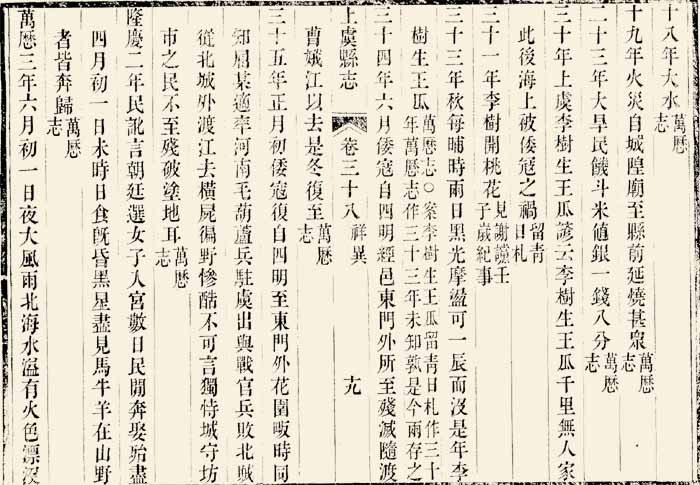 十八年大水萬厯志
十九年火災自城隍廟至縣前延燒甚衆萬厯志
二十三年大旱民饑斗米値銀一錢八分萬厯志
三十年上虞李樹生王瓜諺云李樹生王瓜千里無人家
此後海上被倭寇之禍留青日札
三十一年李樹開桃花見謝讜壬子歲紀事
三十三年秋每晡時雨日黑光摩盪可一辰而沒是年李
樹生王瓜萬厯志○案李樹生王瓜留青日札作三十年萬厯志作三十三年未知孰是今兩存之
三十四年六月倭寇自四明經邑東門外所至殘滅隨渡
曹娥江以去是冬復至萬厯志
上虞縣志
卷三十八
祥異
十九
三十五年正月初倭寇復自四明至東門外花園畈時同
知屠某適率河南毛葫蘆兵駐虞出與戰官兵敗北賊
從北城外渡江去橫屍徧野慘酷不可言獨恃城守坊
市之民不至殘破塗地耳萬厯志
隆慶二年民訛言朝廷選女子入宮數日民閒奔娶殆盡
四月初一日未時日食旣昏黑星盡見馬牛羊在山野
者皆奔歸萬厯志
萬厯三年六月初一日夜大風雨北海水溢有火色漂沒